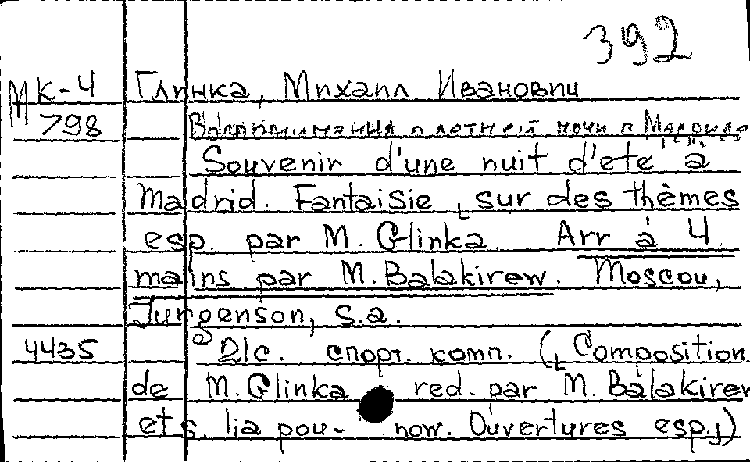 392
МК-4 Глинка, Михаил Иванович
798 Воспоминания о летней ночи в Мадриде
Souvenir d'une nuit d'ete à
Madrid. Fantaisie sur des thèmes
esp. par M. Glinka Arr à 4
mains par M. Balakirew. Moscou,
Jurgenson, s.a.
4435 21c. комп. (Composition
de M. Glinka red. par M. Balakirew
et s. lia pou- now. Ouvertures esp.)